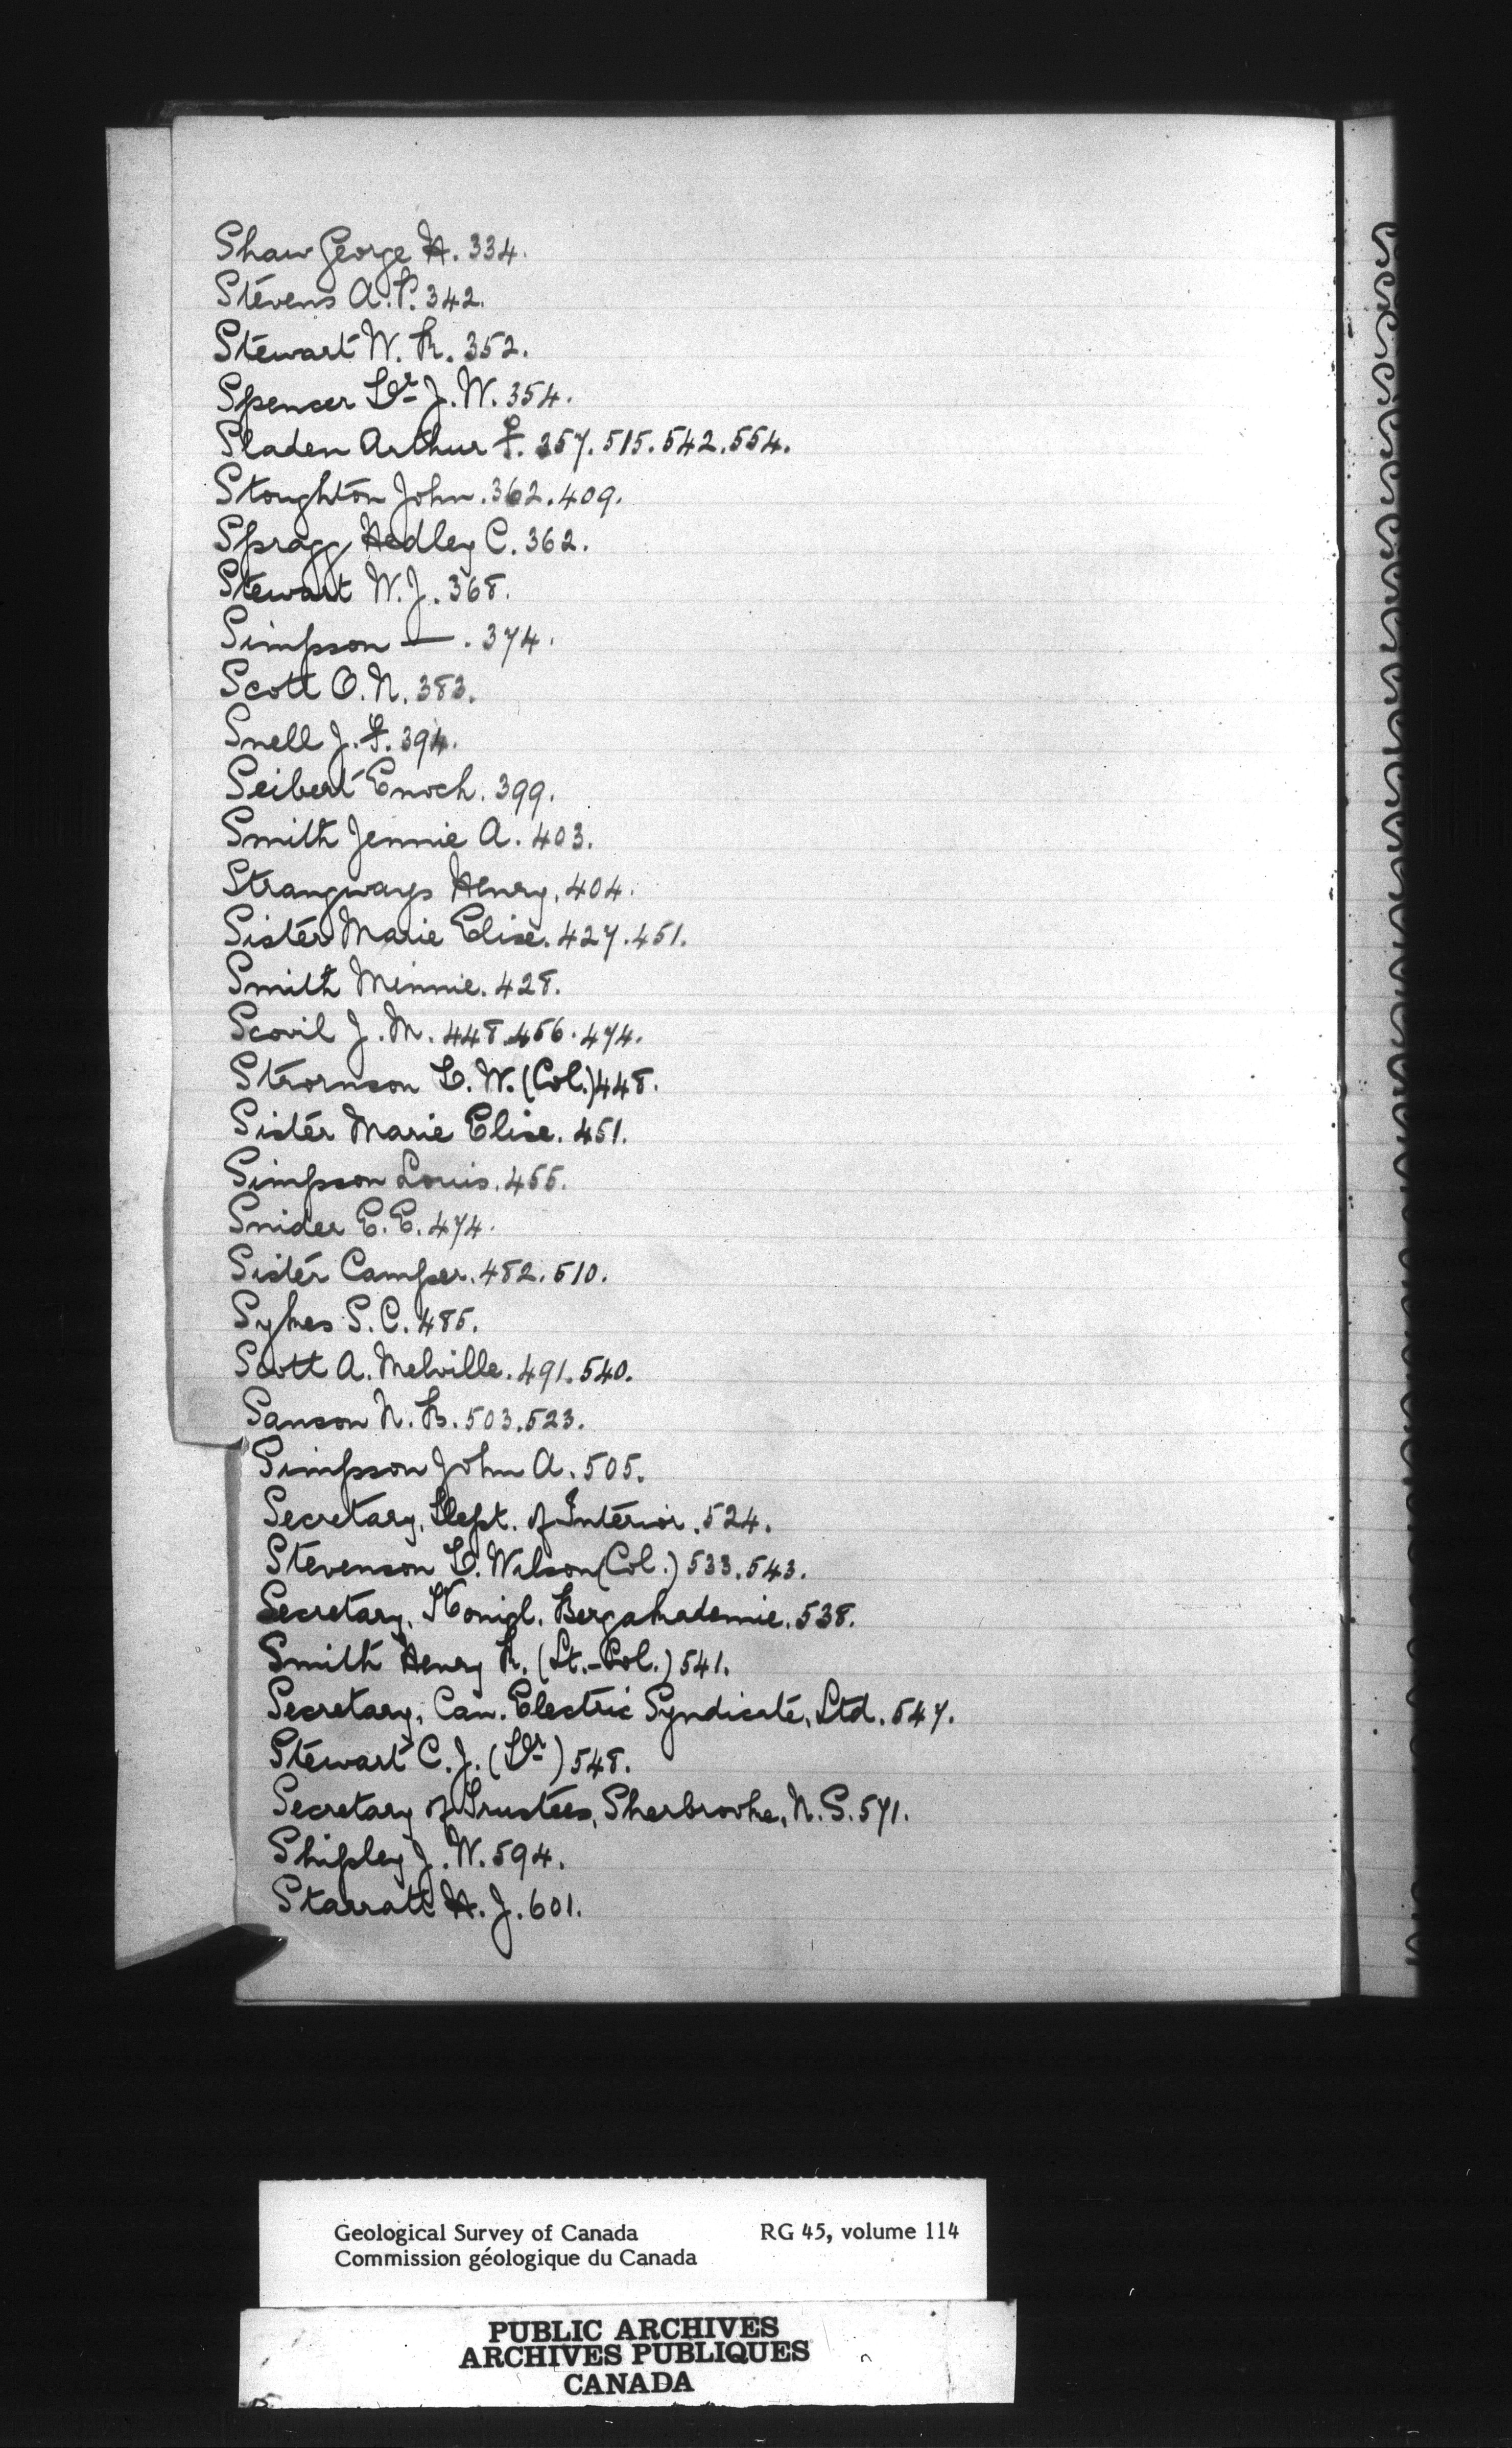 Shaw George H. 334.
Stevens A. P. 342.
Stewart W. R. 352.
Spencer Dr J. W. 354.
Sladen Arthur F. 357. 515. 542. 554.
Stoughton John. 362. 409.
Spragg Hedley C. 362.
Stewart W. J. 368.
Simpson — . 374.
Scott O. N. 383.
Snell J. F. 394.
Seibert Enoch. 399.
Smith Jennie A. 403.
Strangways Henry. 404.
Sister Marie Elise. 427. 451.
Smith Minnie. 428.
Scovil J. M. 448. 456. 474.
Strornson D. W. (Col.) 448.
Sister Marie Elise. 451.
Simpson Louis. 455.
Snider E. E. 474.
Sister Camper. 482. 510.
Sykes S. C. 485.
Scott A. Melville. 491. 540.
Sanson N. B. 503. 523.
Simpson John A. 505.
Secretary, Dept. of Interior. 524.
Stevenson D. Wilson (Col.) 533. 543.
Secretary, Konigl. Bergakademie. 538.
Smith Henry R. (Lt.-Col.) 541.
Secretary, Can. Electric Syndicate, Ltd. 547.
Stewart C. J. (Dr) 548.
Secretary of Trustees, Sherbrooke, N. S. 571.
Shipley J. W. 594.
Starratt H. J. 601.
Geological Survey of Canada RG 45, volume 114
Commission géologique du Canada
PUBLIC ARCHIVES
ARCHIVES PUBLIQUES
CANADA